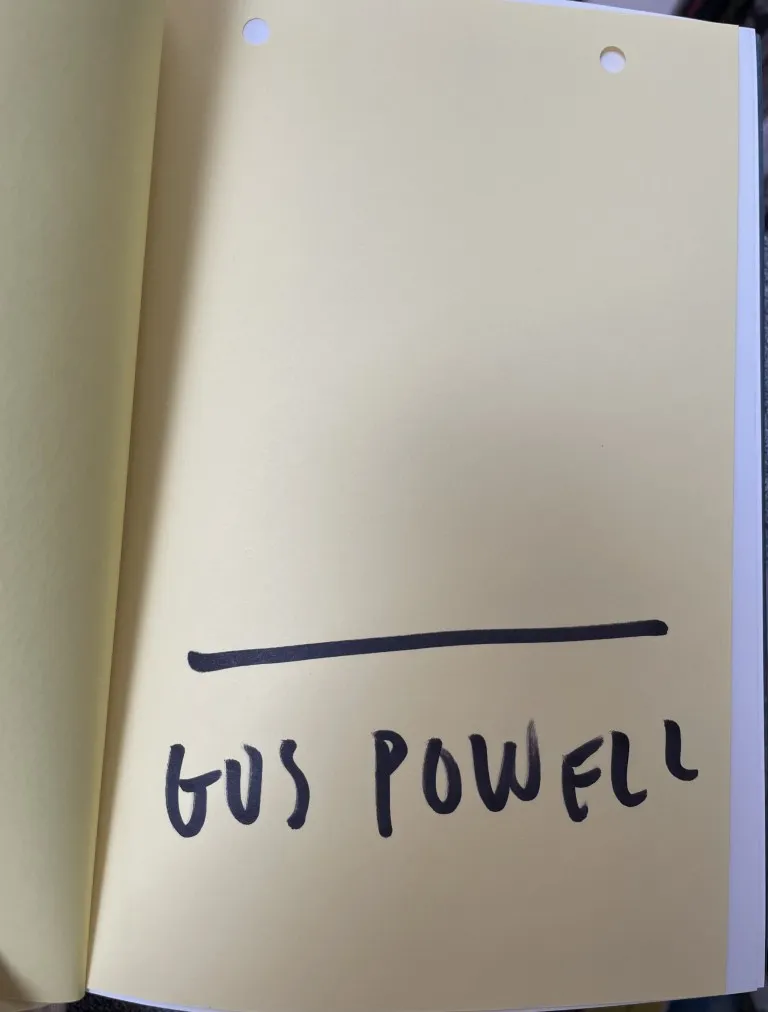 GUS POWELL